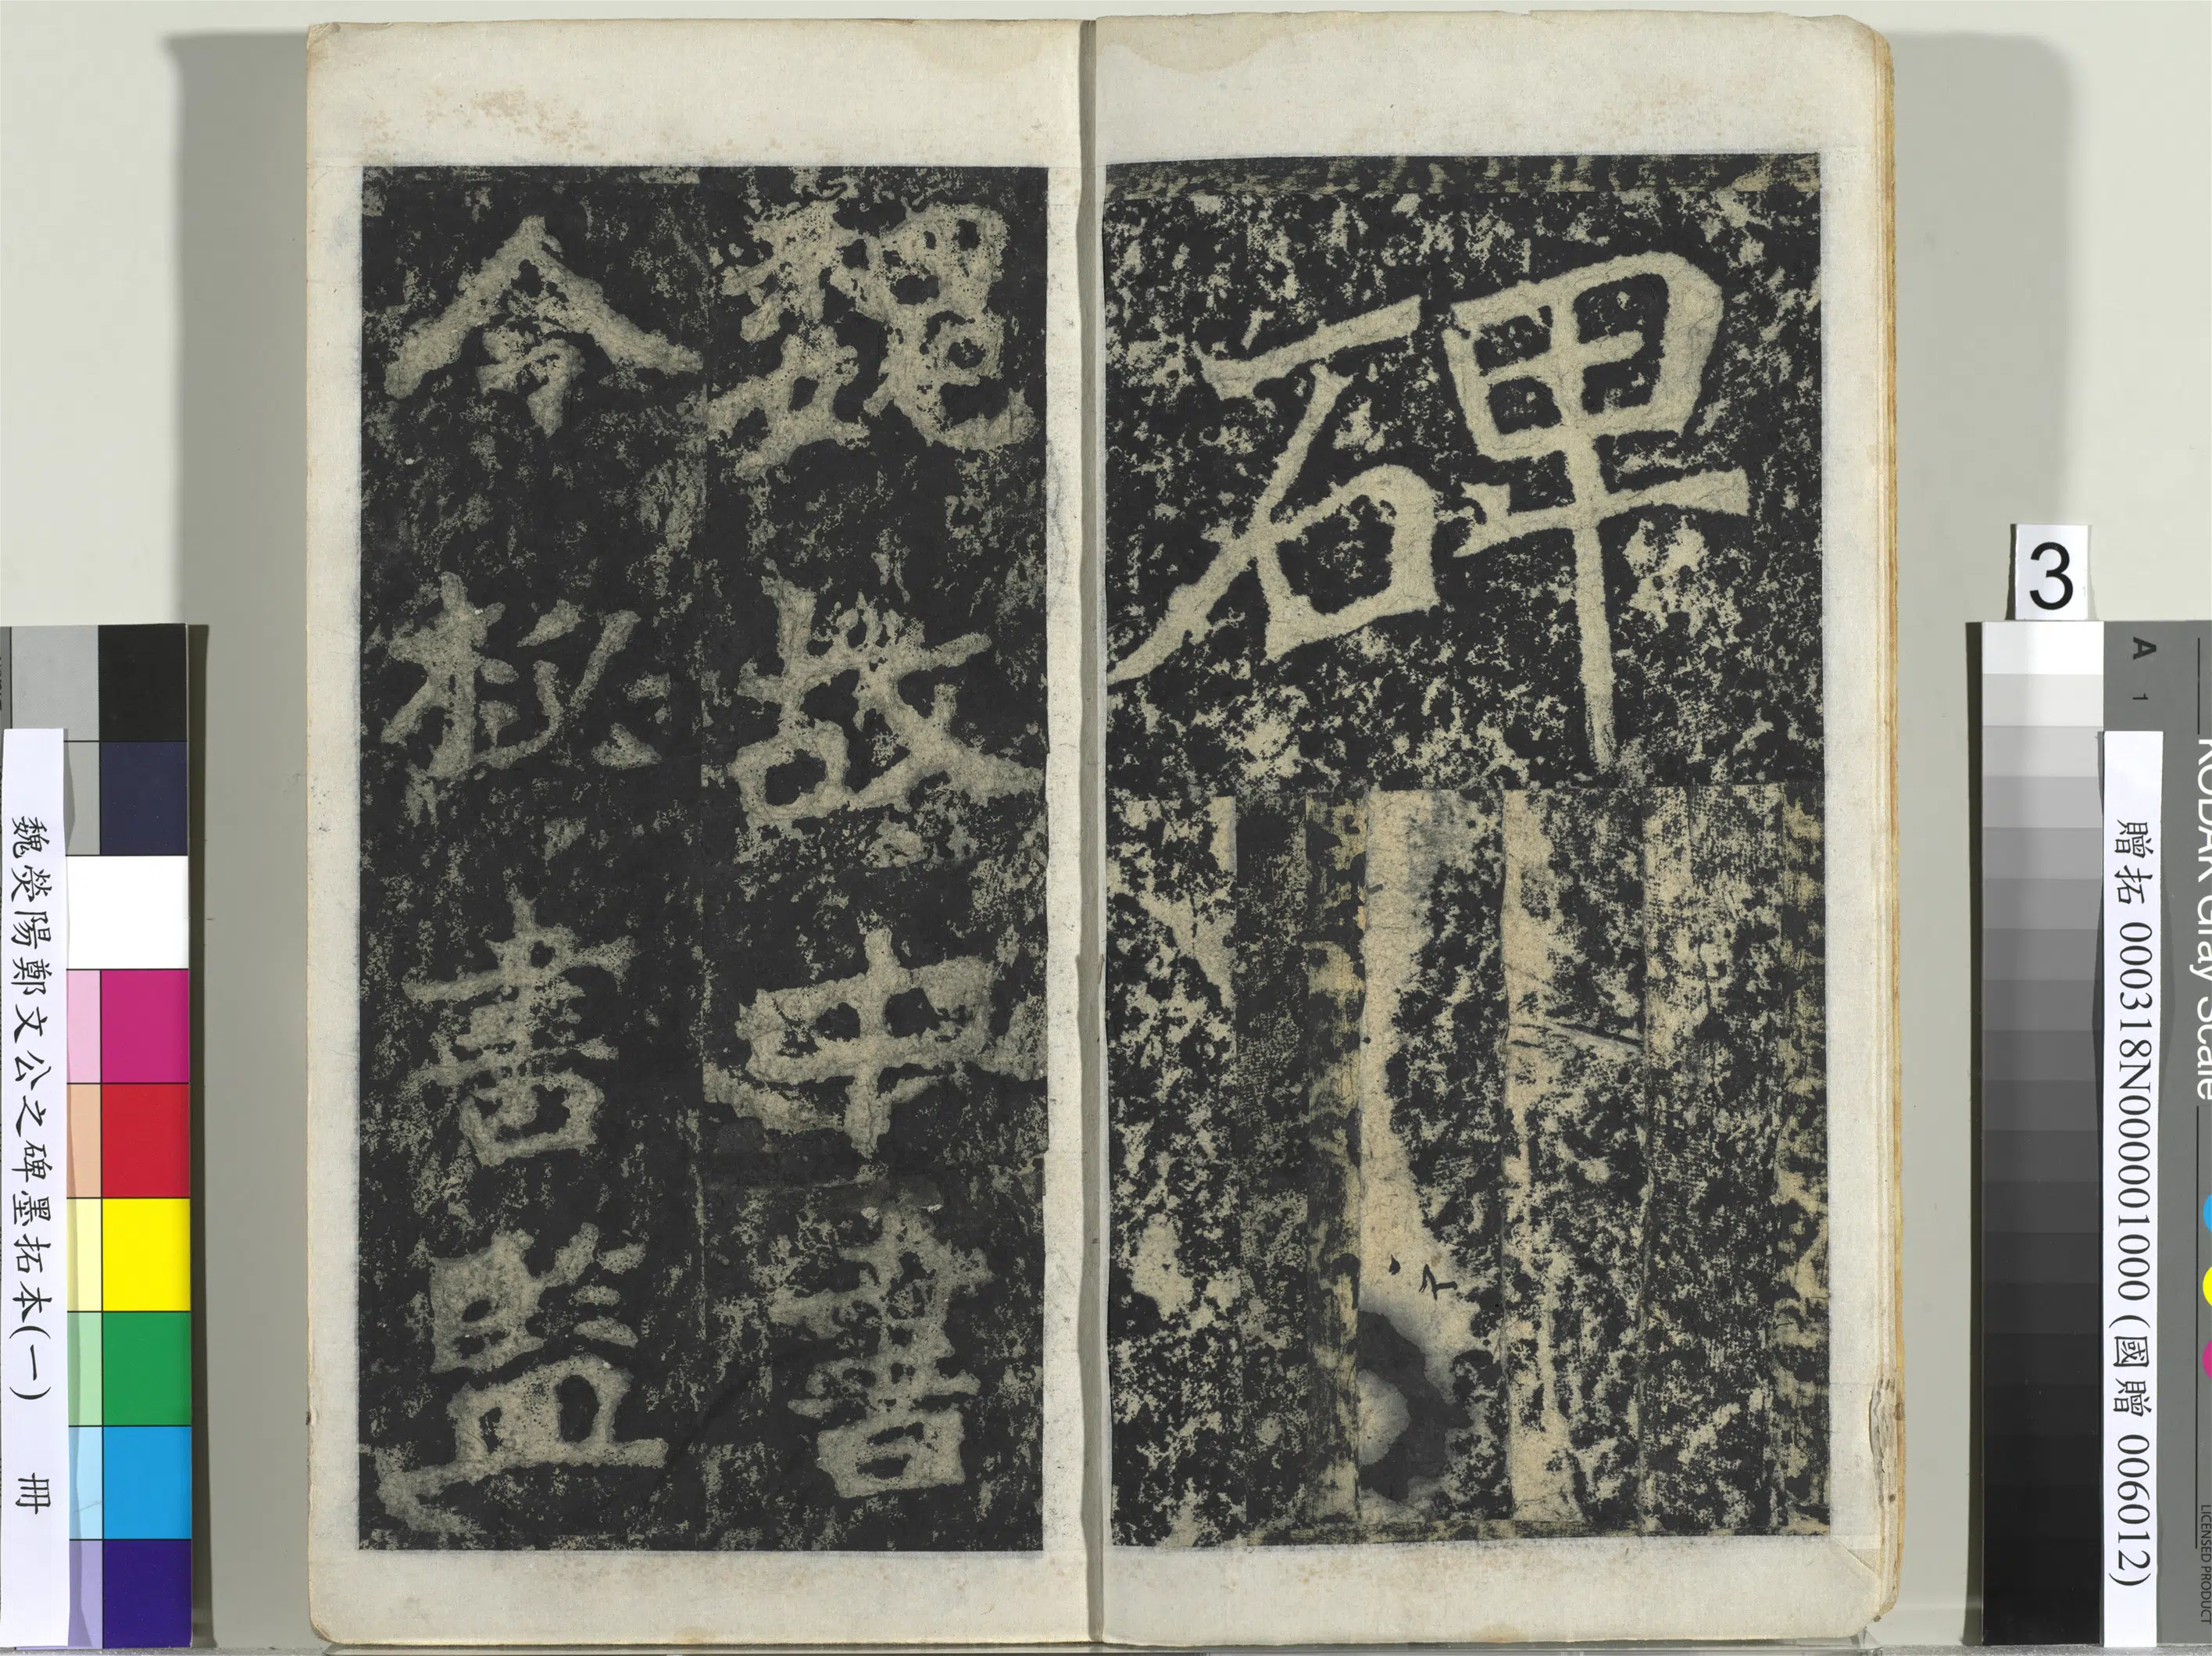 碑
魏故中書
令秘書監
3
A 1
KODAK Gray Scale
LICENSED PRODUCT
贈拓 000318N000001000 (國贈 006012)
魏滎陽鄭文公之碑墨拓本(一) 冊